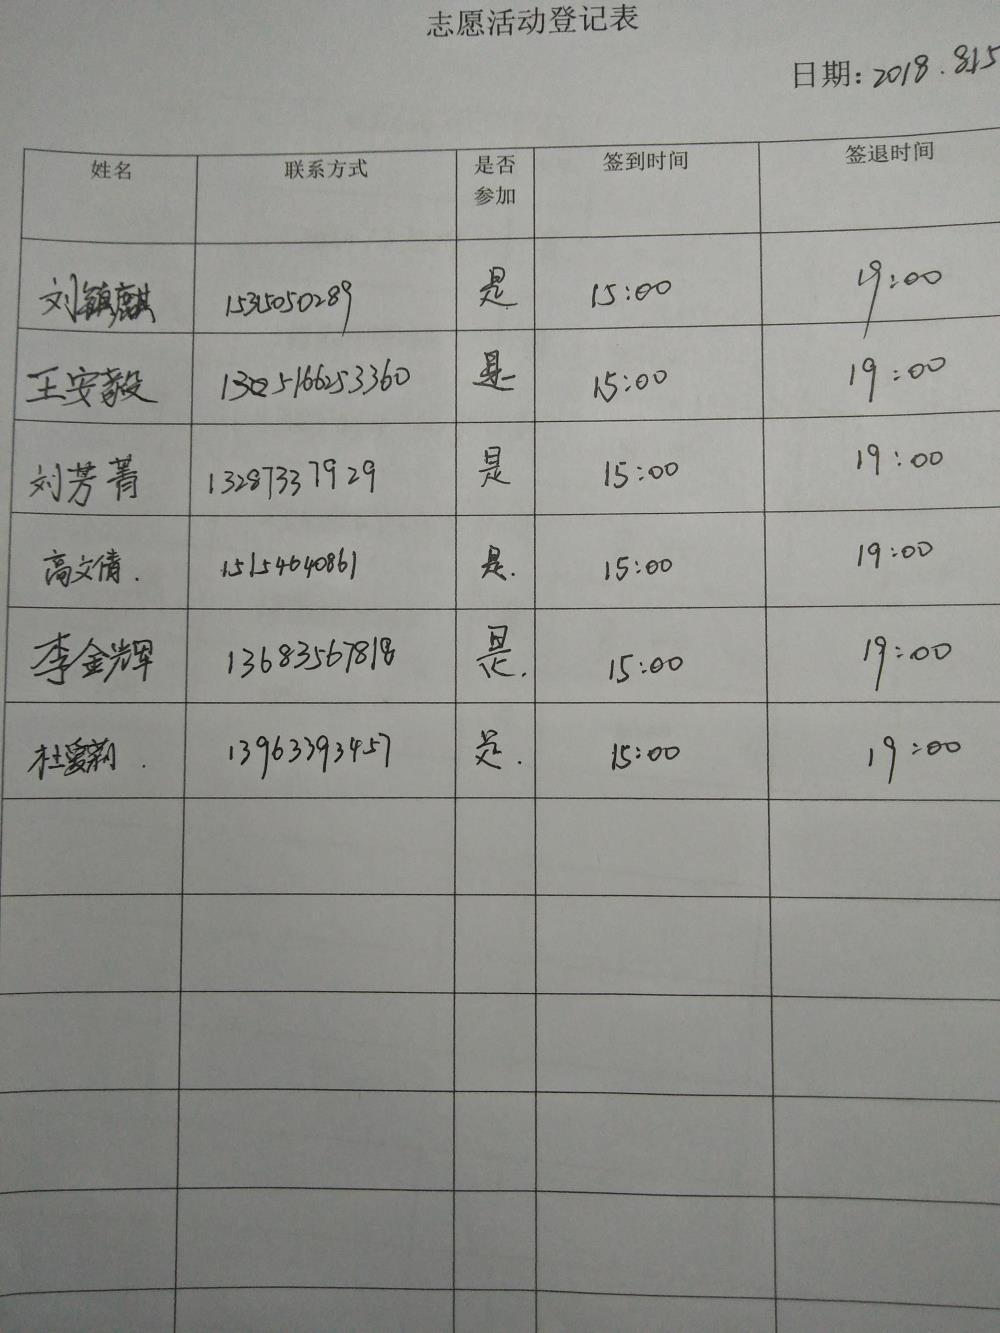 志愿活动登记表
日期: 2018.8.15
姓名 联系方式 是否参加 签到时间 签退时间
刘镇麒 15315050289 是 15:00 19:00
王安毅 是 15:00 19:00
刘芳菁 13287337929 是 15:00 19:00
高文倩. 15154640861 是. 15:00 19:00
李金辉 13683567818 是. 15:00 19:00
杜爱莉. 13963393457 是. 15:00 19:00